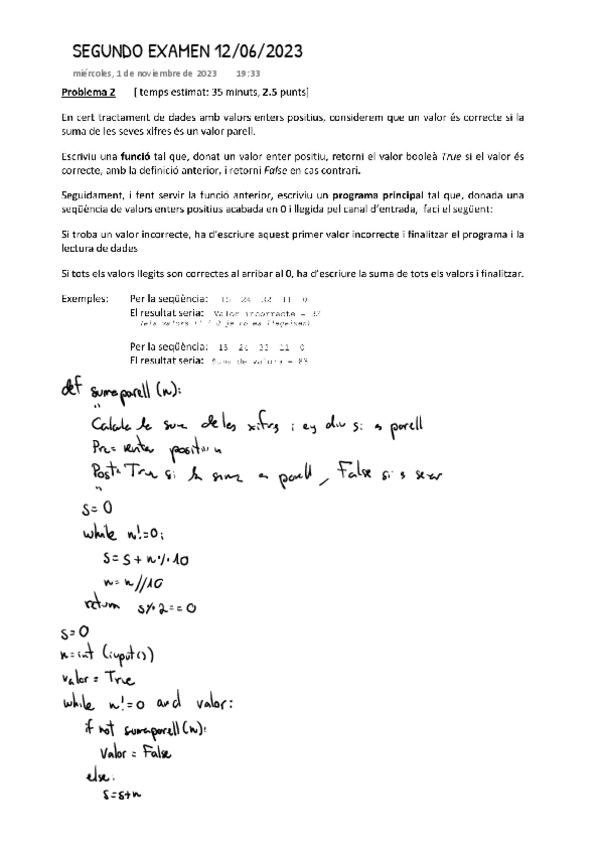 SEGUNDO EXAMEN 12/06/2023
miércoles, 1 de noviembre de 2023 19:33
Problema 2 [ temps estimat: 35 minuts, 2.5 punts]
En cert tractament de dades amb valors enters positius, considerem que un valor és correcte si la
suma de les seves xifres és un valor parell.
Escriviu una funció tal que, donat un valor enter positiu, retorni el valor booleà True si el valor és
correcte, amb la definició anterior, i retorni False en cas contrari.
Seguidament, i fent servir la funció anterior, escriviu un programa principal tal que, donada una
seqüència de valors enters positius acabada en 0 i llegida pel canal d'entrada, faci el següent:
Si troba un valor incorrecte, ha d'escriure aquest primer valor incorrecte i finalitzar el programa i la
lectura de dades
Si tots els valors llegits son correctes al arribar al 0, ha d'escriure la suma de tots els valors i finalitzar.
Exemples: Per la seqüència: 15 24 32 11 0
El resultat seria: Valor incorrecte = 32
(els valors 11 i 0 ja no es llegeixen)
Per la seqüència: 15 24 33 11 0
El resultat seria: Suma de valors = 83
def sumaparell (n):
"
la de les xifres i si parell
Pre=
Post= True si la suma parell, False si
"
s=0
while n!=0:
s=s+n%10
n=n//10
return s%2==0
s=0
n=int (input())
valor = True
while n!=0 and valor:
if not sumaparell(n):
Valor = False
else:
s=s+n